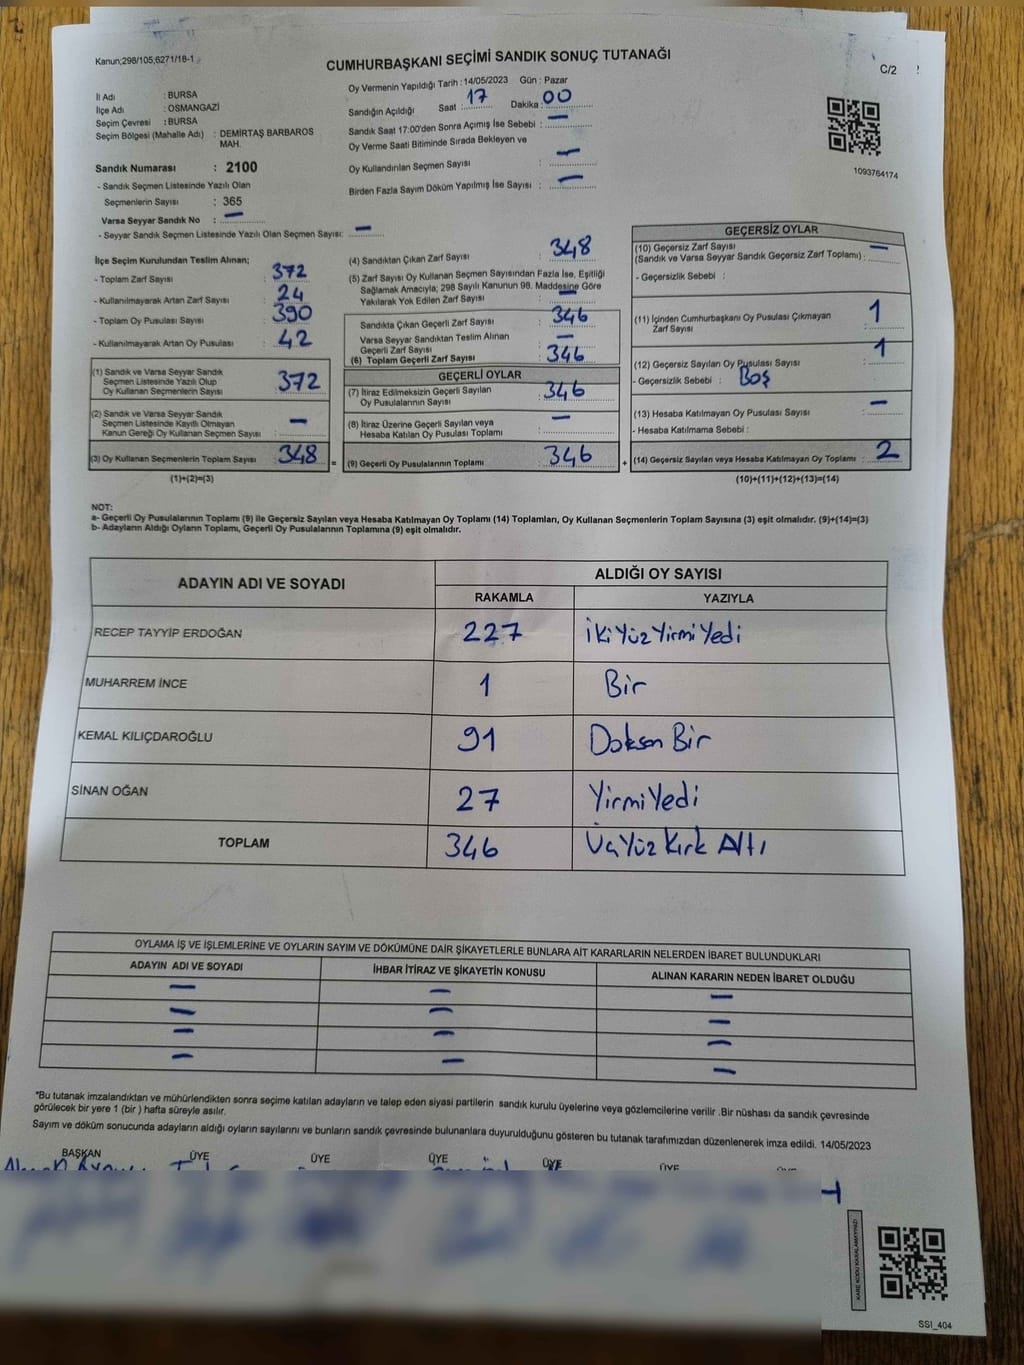 Kanun;298/105,6271/18-1
CUMHURBAŞKANI SEÇİMİ SANDIK SONUÇ TUTANAĞI
C/2
İl Adı : BURSA
İlçe Adı : OSMANGAZİ
Seçim Çevresi : BURSA
Seçim Bölgesi (Mahalle Adı) : DEMİRTAŞ BARBAROS MAH.
Sandık Numarası : 2100
- Sandık Seçmen Listesinde Yazılı Olan
Seçmenlerin Sayısı : 365
Varsa Seyyar Sandık No : —
- Seyyar Sandık Seçmen Listesinde Yazılı Olan Seçmen Sayısı: —
Oy Vermenin Yapıldığı Tarih : 14/05/2023 Gün : Pazar
Sandığın Açıldığı Saat : 17 Dakika : 00
Sandık Saat 17:00'den Sonra Açımış İse Sebebi : —
Oy Verme Saati Bitiminde Sırada Bekleyen ve
Oy Kullandırılan Seçmen Sayısı : —
Birden Fazla Sayım Döküm Yapılmış İse Sayısı : —
1093764174
İlçe Seçim Kurulundan Teslim Alınan;
- Toplam Zarf Sayısı : 372
- Kullanılmayarak Artan Zarf Sayısı : 24
- Toplam Oy Pusulası Sayısı : 390
- Kullanılmayarak Artan Oy Pusulası : 42
(1) Sandık ve Varsa Seyyar Sandık
Seçmen Listesinde Yazılı Olup
Oy Kullanan Seçmenlerin Sayısı : 372
(2) Sandık ve Varsa Seyyar Sandık
Seçmen Listesinde Kayıtlı Olmayan
Kanun Gereği Oy Kullanan Seçmen Sayısı : —
(3) Oy Kullanan Seçmenlerin Toplam Sayısı : 348
(1)+(2)=(3)
(4) Sandıktan Çıkan Zarf Sayısı : 348
(5) Zarf Sayısı Oy Kullanan Seçmen Sayısından Fazla İse, Eşitliği
Sağlamak Amacıyla; 298 Sayılı Kanunun 98. Maddesine Göre
Yakılarak Yok Edilen Zarf Sayısı : —
Sandıkta Çıkan Geçerli Zarf Sayısı : 346
Varsa Seyyar Sandıktan Teslim Alınan
Geçerli Zarf Sayısı : —
(6) Toplam Geçerli Zarf Sayısı : 346
GEÇERLİ OYLAR
(7) İtiraz Edilmeksizin Geçerli Sayılan
Oy Pusulalarının Sayısı : 346
(8) İtiraz Üzerine Geçerli Sayılan veya
Hesaba Katılan Oy Pusulası Toplamı : —
= (9) Geçerli Oy Pusulalarının Toplamı : 346 +
GEÇERSİZ OYLAR
(10) Geçersiz Zarf Sayısı
(Sandık ve Varsa Seyyar Sandık Geçersiz Zarf Toplamı) : —
- Geçersizlik Sebebi :
(11) İçinden Cumhurbaşkanı Oy Pusulası Çıkmayan
Zarf Sayısı : 1
(12) Geçersiz Sayılan Oy Pusulası Sayısı : 1
- Geçersizlik Sebebi : Boş
(13) Hesaba Katılmayan Oy Pusulası Sayısı : —
- Hesaba Katılmama Sebebi :
(14) Geçersiz Sayılan veya Hesaba Katılmayan Oy Toplamı : 2
(10)+(11)+(12)+(13)=(14)
NOT:
a- Geçerli Oy Pusulalarının Toplamı (9) ile Geçersiz Sayılan veya Hesaba Katılmayan Oy Toplamı (14) Toplamları, Oy Kullanan Seçmenlerin Toplam Sayısına (3) eşit olmalıdır. (9)+(14)=(3)
b- Adayların Aldığı Oyların Toplamı, Geçerli Oy Pusulalarının Toplamına (9) eşit olmalıdır.
ADAYIN ADI VE SOYADI
ALDIĞI OY SAYISI
RAKAMLA YAZIYLA
RECEP TAYYİP ERDOĞAN 227 İkiYüzYirmiYedi
MUHARREM İNCE 1 Bir
KEMAL KILIÇDAROĞLU 91 Doksan Bir
SİNAN OĞAN 27 YirmiYedi
TOPLAM 346 ÜçYüz Kırk Altı
OYLAMA İŞ VE İŞLEMLERİNE VE OYLARIN SAYIM VE DÖKÜMÜNE DAİR ŞİKAYETLERLE BUNLARA AİT KARARLARIN NELERDEN İBARET BULUNDUKLARI
ADAYIN ADI VE SOYADI İHBAR İTİRAZ VE ŞİKAYETİN KONUSU ALINAN KARARIN NEDEN İBARET OLDUĞU
— — —
— — —
— — —
— — —
*Bu tutanak imzalandıktan ve mühürlendikten sonra seçime katılan adayların ve talep eden siyasi partilerin sandık kurulu üyelerine veya gözlemcilerine verilir .Bir nüshası da sandık çevresinde
görülecek bir yere 1 (bir ) hafta süreyle asılır.
Sayım ve döküm sonucunda adayların aldığı oyların sayılarını ve bunların sandık çevresinde bulunanlara duyurulduğunu gösteren bu tutanak tarafımızdan düzenlenerek imza edildi. 14/05/2023
BAŞKAN ÜYE ÜYE ÜYE ÜYE ÜYE ÜYE
KARE KODU KARALAMAYINIZ!
SSI_404